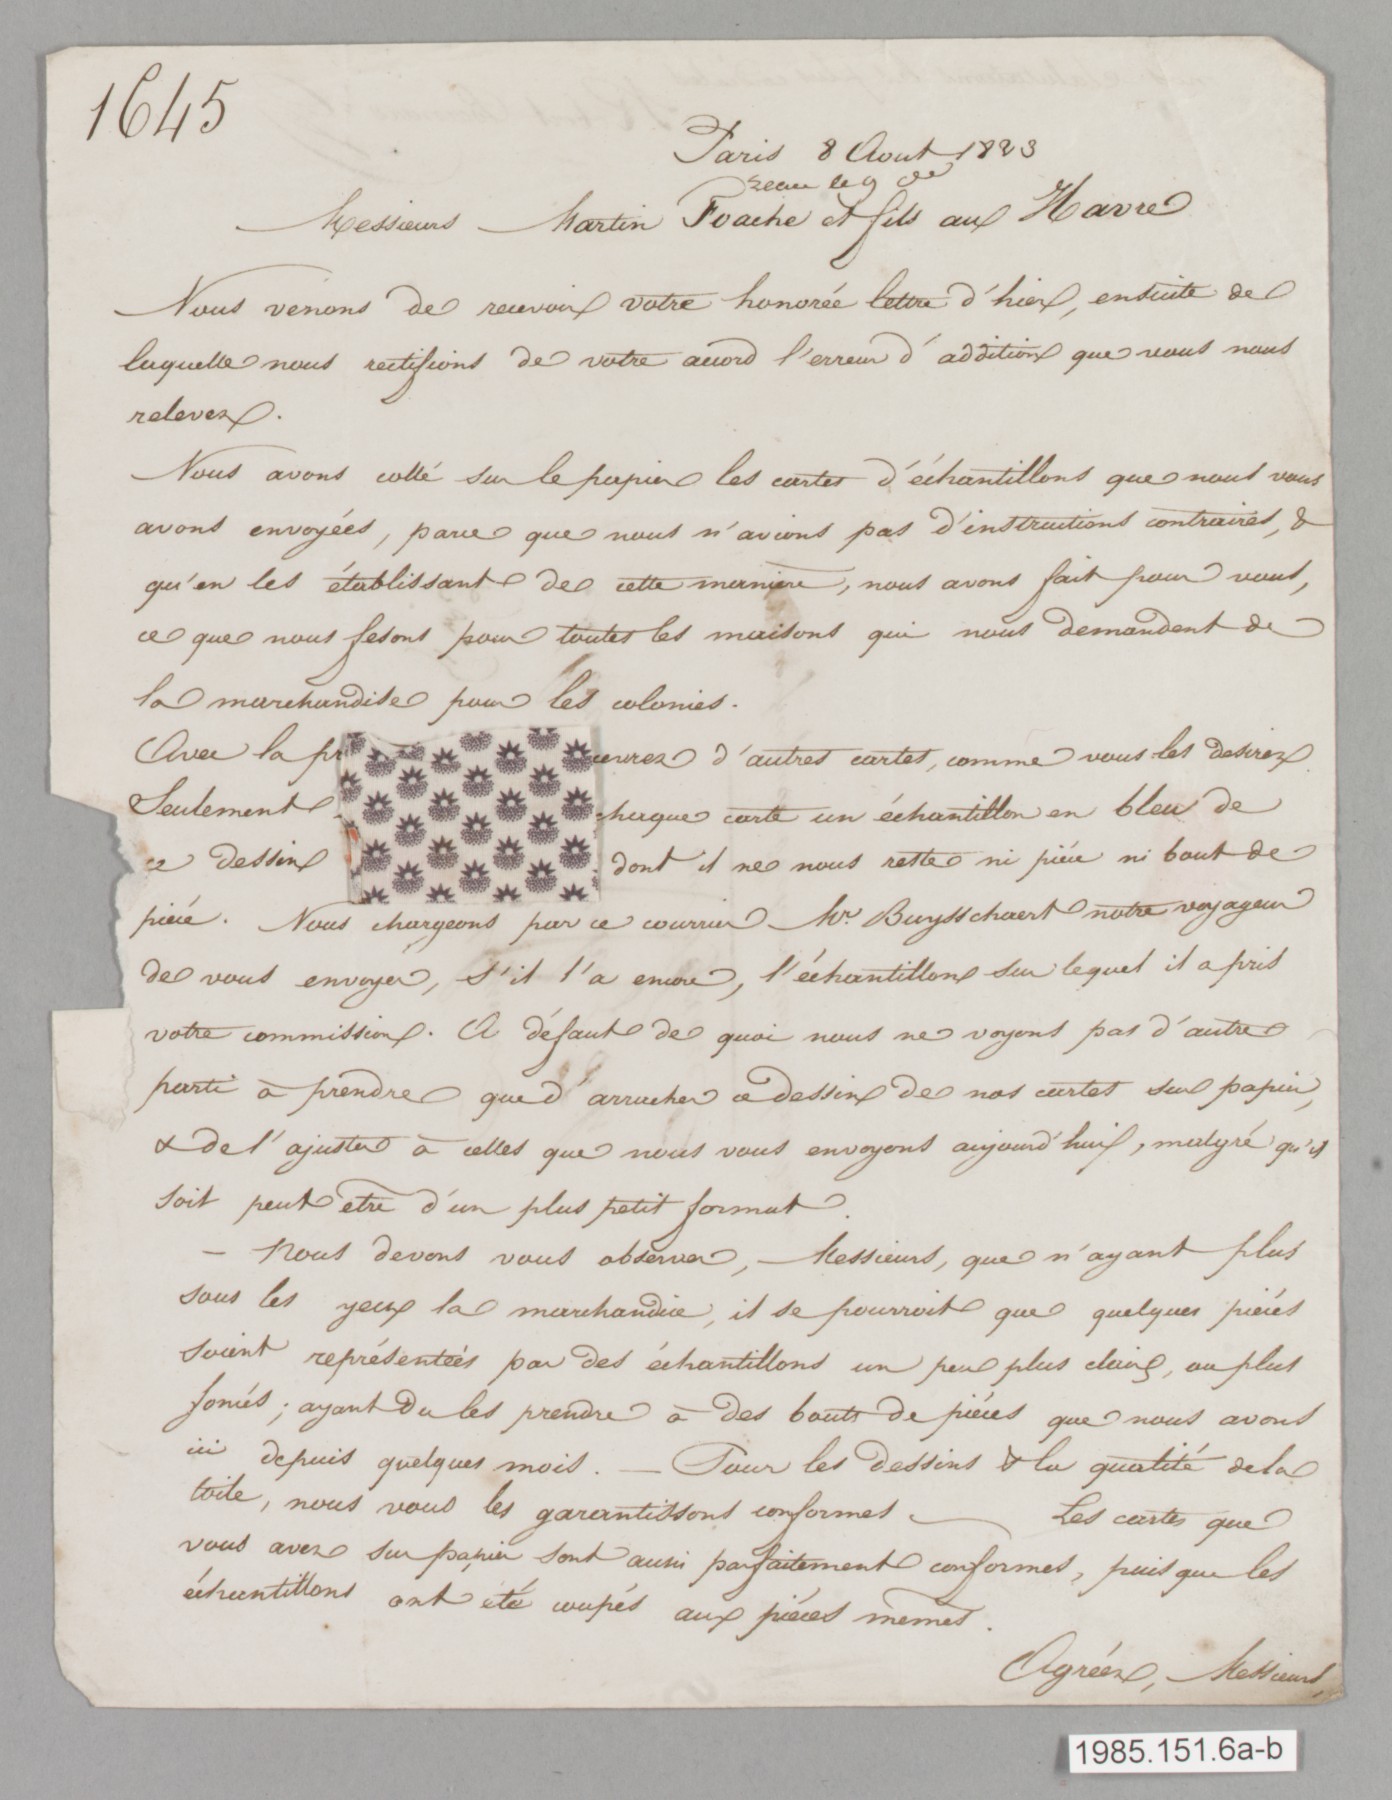 1645
Paris 8 Aout 1823
recue le 9 do
Messieurs Martin Foache et fils au Havre
Nous venons de recevoir votre honorée lettre d'hier, ensuite de
laquelle nous rectifions de votre accord l'erreur d'addition que vous nous
relevez.
Nous avons collé sur le papier les cartes d'échantillons que nous vous
avons envoyées, parce que nous n'avions pas d'instructions contraires, &
qu'en les établissant de cette maniere, nous avons fait pour vous,
ce que nous fesons pour toutes les maisons qui nous demandent de
la marchandise pour les colonies.
Avec la pr cevrez d'autres cartes, comme vous les desirez
Seulement chaque carte un échantillon en bleu de
ce dessin dont il ne nous reste ni piéce ni bout de
piéce. Nous chargeons par ce courrier Mr. Buysschaert notre voyageur
de vous envoyer, s'il l'a encore, l'échantillon sur lequel il a pris
votre commission. A défaut de quoi nous ne voyons pas d'autre
parti à prendre que d'arracher ce dessin de nos cartes sur papier,
& de l'ajuster à celles que nous vous envoyons aujourd'hui, malgré qu'il
soit peut etre d'un plus petit format.
- Nous devons vous observer, Messieurs, que n'ayant plus
sous les yeux la marchandise, il se pourroit que quelques piéces
soient représentées par des échantillons un peu plus clairs, ou plus
foncés; ayant du les prendre à des bouts de piéces que nous avons
ici depuis quelques mois. — Pour les dessins & la qualité de la
toile, nous vous les garantissons conformes — Les cartes que
vous avez sur papier sont aussi parfaitement conformes, puisque les
échantillons ont été coupés aux piéces mêmes.
Agréez, Messieurs,
1985.151.6a-b